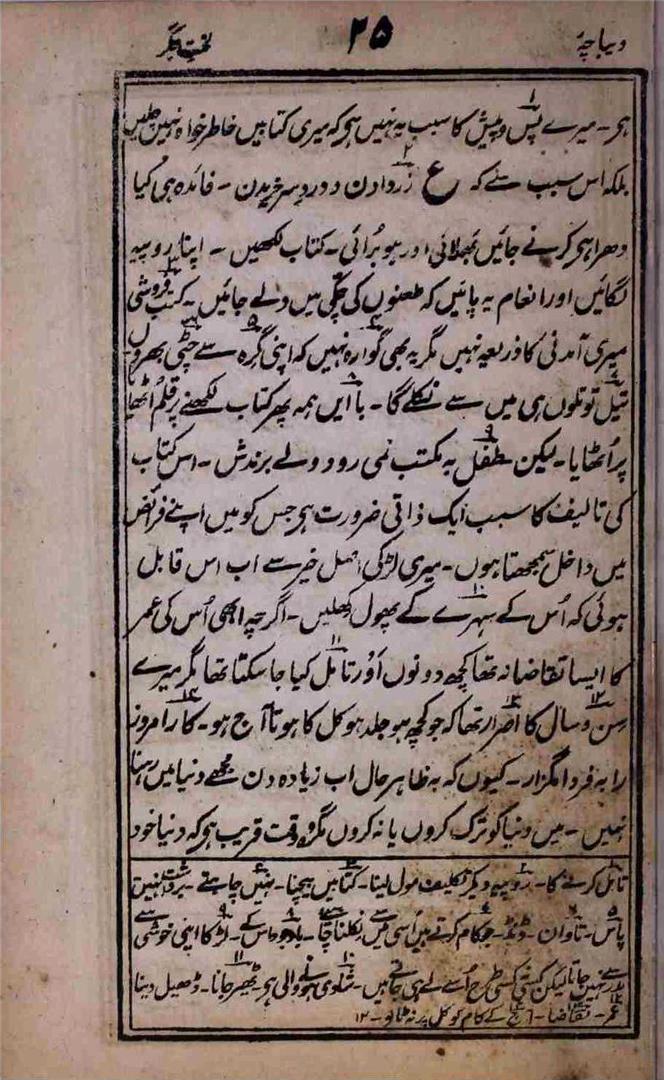 دیباچہ ۲۵ لخت جگر
ہی۔ میرے پس و پیش کا سبب یہ نہیں ہی کہ میری کتابیں خاطر خواہ نہیں چلیں
بلکہ اس سبب سے کہ ع زر دادن و دردِ سر خریدن۔ فائدہ ہی کیا
دھرا ہی کرنے جائیں بھلائی اور ہو بُرائی۔ کتاب لکھیں۔ اپنا روپیہ
لگائیں اور انعام یہ پائیں کہ طعنوں کی چکّی میں دلے جائیں۔ کتب فروشی
میری آمدنی کا ذریعہ نہیں مگر یہ بھی گوارہ نہیں کہ اپنی گرہ سے چٹّی بھروں
تیل تو تلوں ہی میں سے نکلے گا۔ با ایں ہمہ پھر کتاب لکھنے پر قلم اُٹھایا
پر اُٹھایا۔ لیکن طفل بہ مکتب نمی رود ولے برندش۔ اس کتاب
کی تالیف کا سبب ایک ذاتی ضرورت ہی جس کو میں اپنے فرائض
میں داخل سمجھتا ہوں۔ میری لڑکی اصل خیر سے اب اس قابل
ہوئی کہ اُس کے سہرے کے پھول کھلیں۔ اگرچہ ابھی اُس کی عمر
کا ایسا تقاضا نہ تھا کچھ دونوں اَور تامل کیا جا سکتا تھا مگر میرے
سِن و سال کا اصرار تھا کہ جو کچھ ہو جلد ہو کل کا ہوتا آج ہو۔ کار امروز
را بہ فردا مگزار۔ کیوں کہ بہ ظاہر حال اب زیادہ دن مجھے دنیا میں رہنا
نہیں۔ میں دنیا کو ترک کروں یا نہ کروں مگر وہ وقت قریب ہی کہ دنیا خود
تامل کرنے کا۔ روپیہ دیکر تکلیف مول لینا۔ کتابیں بیچنا۔ نہیں چاہتے۔ برداشت نہیں
پاس۔ تاوان۔ ڈنڈ۔ جو کام کرتے ہیں اُسی میں سے نکلنا چاہیے۔ باوجود اس کے۔ لڑکا اپنی خوشی سے
مدرسے نہیں جاتا لیکن کسی نہ کسی طرح اُسے لے ہی جاتے ہیں۔ شادی ہونے والی ہی۔ ٹھیر جانا۔ ڈھیل دینا
عمر۔ تقاضا۔ آج کے کام کو کل پر نہ ٹالو۔ ۱۲